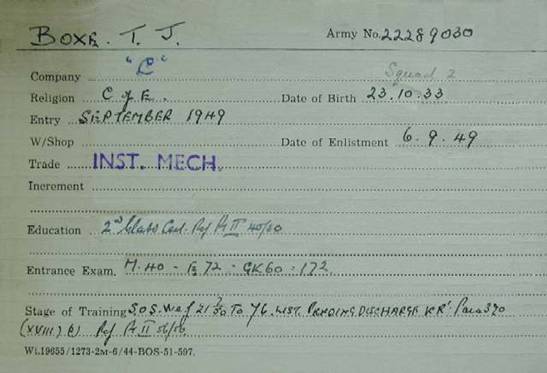 BOXR. T. J. Army No. 22289030
Company "C" Squad 2
Religion C of E. Date of Birth 23.10.33
Entry SEPTEMBER 1949
W/Shop Date of Enlistment 6.9.49
Trade INST. MECH.
Increment
Education 2nd Class Cert. Ref Pt II 40/50
Entrance Exam. M.40 - E 72 - GK60 : 172
Stage of Training S.O.S. w.e.f 21 7/50 To Y6. LIST. PENDING DISCHARGE KR' Para 370
(XVIII) B) Ref Pt II
Wt.19655/1273-2M-6/44-BOS-51-597.